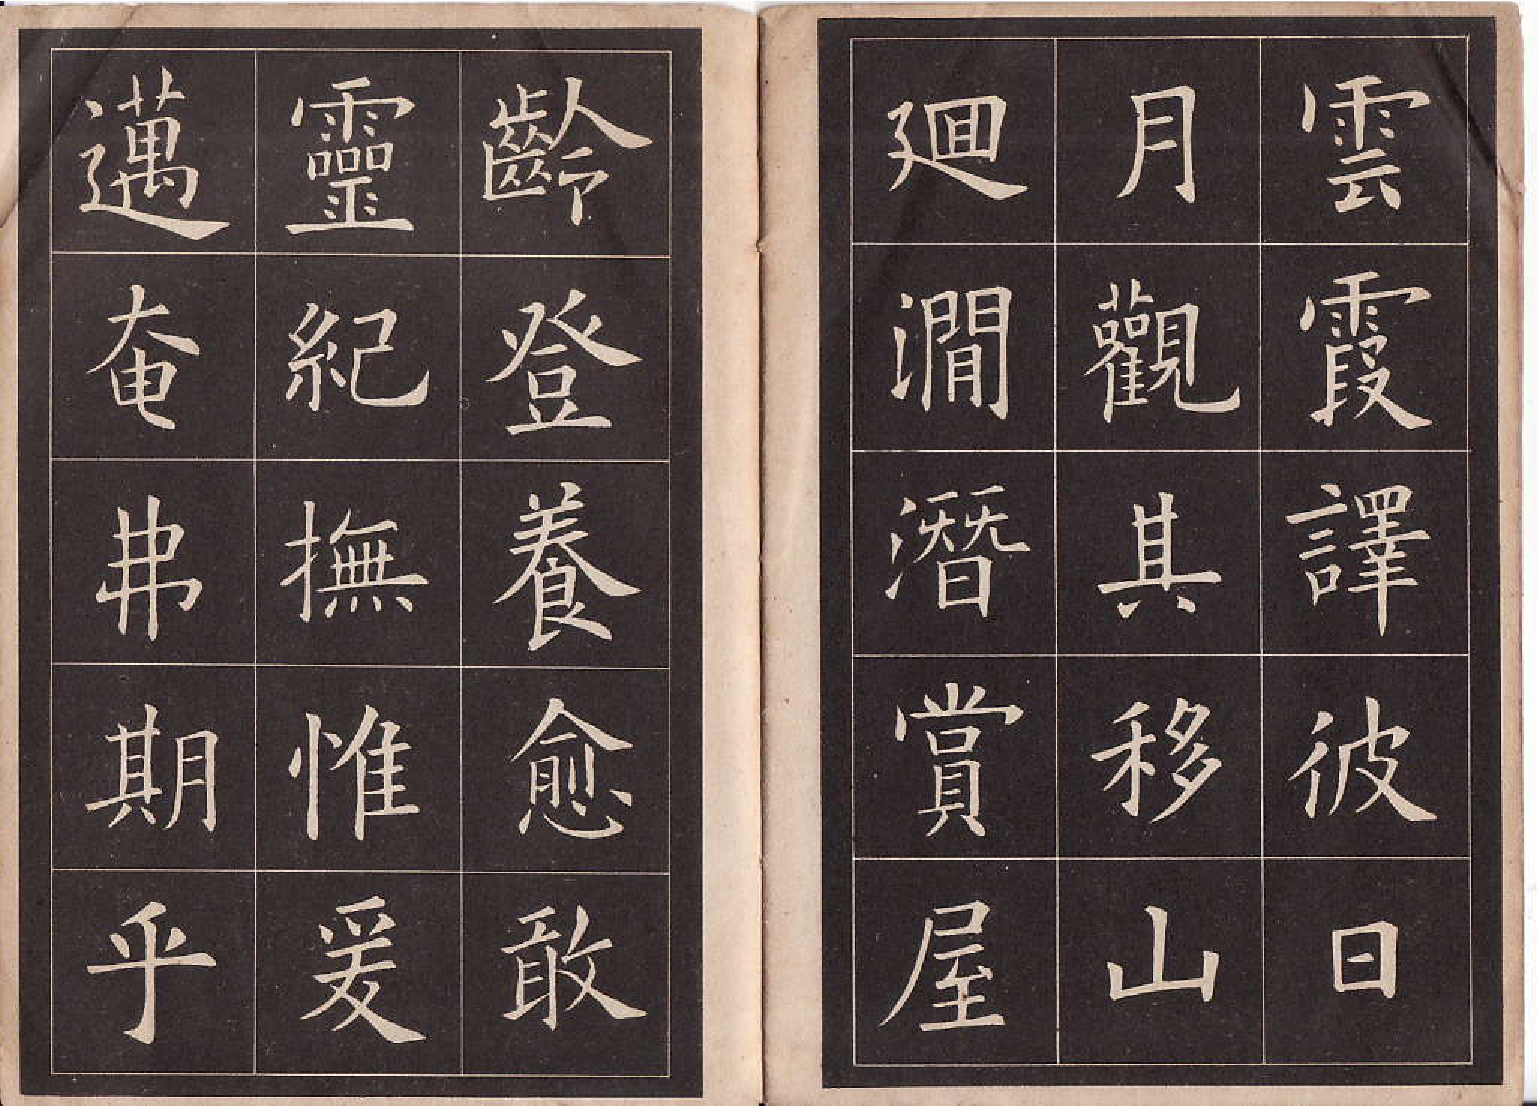 雲霞譯彼日
月觀其移山
廻澗潛賞屋
齡登養愈敢
靈紀撫惟爰
邁奄弗期乎